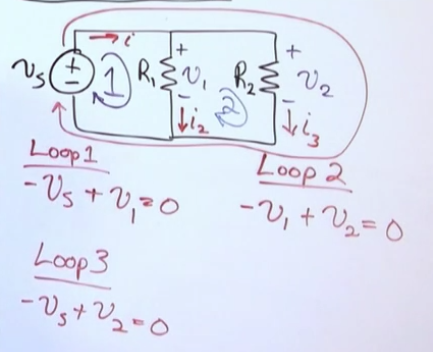 i
+
+
vs
+
-
1
R1
v1
R2
v2
2
-
-
i2
i3
Loop 1
-vs + v1 = 0
Loop 2
-v1 + v2 = 0
Loop 3
-vs + v2 = 0